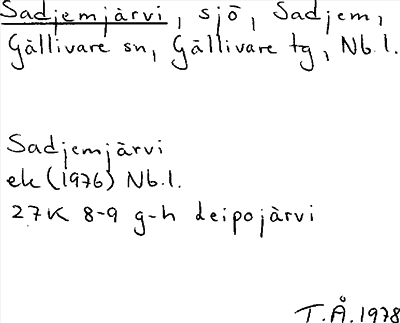 Sadjemjärvi, sjö, Sadjem,
Gällivare sn, Gällivare tg, Nb.l.
Sadjemjärvi
ek (1976) Nb.l.
27K 8-9 g-h Leipojärvi
T.Å. 1978